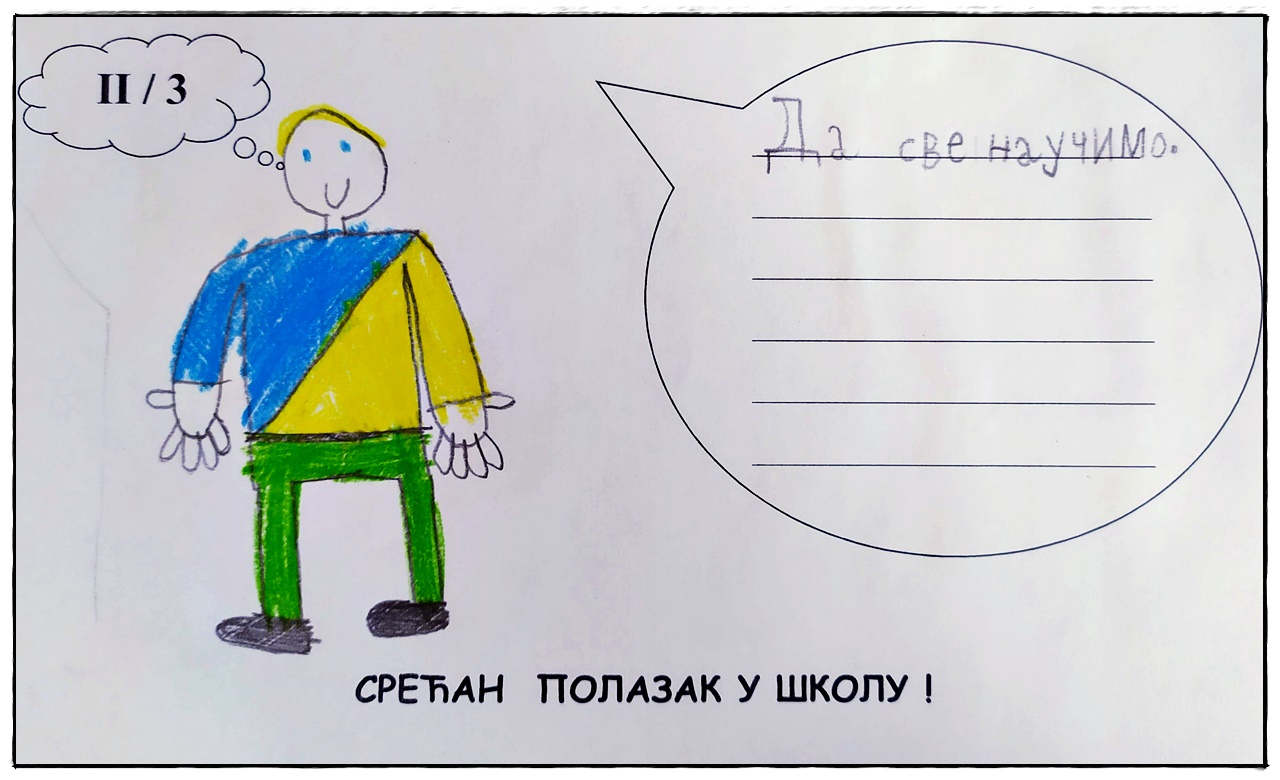 II / 3
Да све научимо.
СРЕЋАН ПОЛАЗАК У ШКОЛУ !